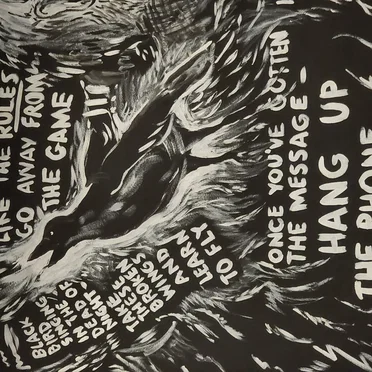 LIKE THE RULES
GO AWAY FROM
THE GAME
!!!
BLACK
BIRD
SINGING
IN THE
DEAD OF
NIGHT
TAKE
THESE
BROKEN
WINGS
AND
LEARN
TO FLY
ONCE YOU'VE GOTTEN
THE MESSAGE—
HANG UP
THE PHONE